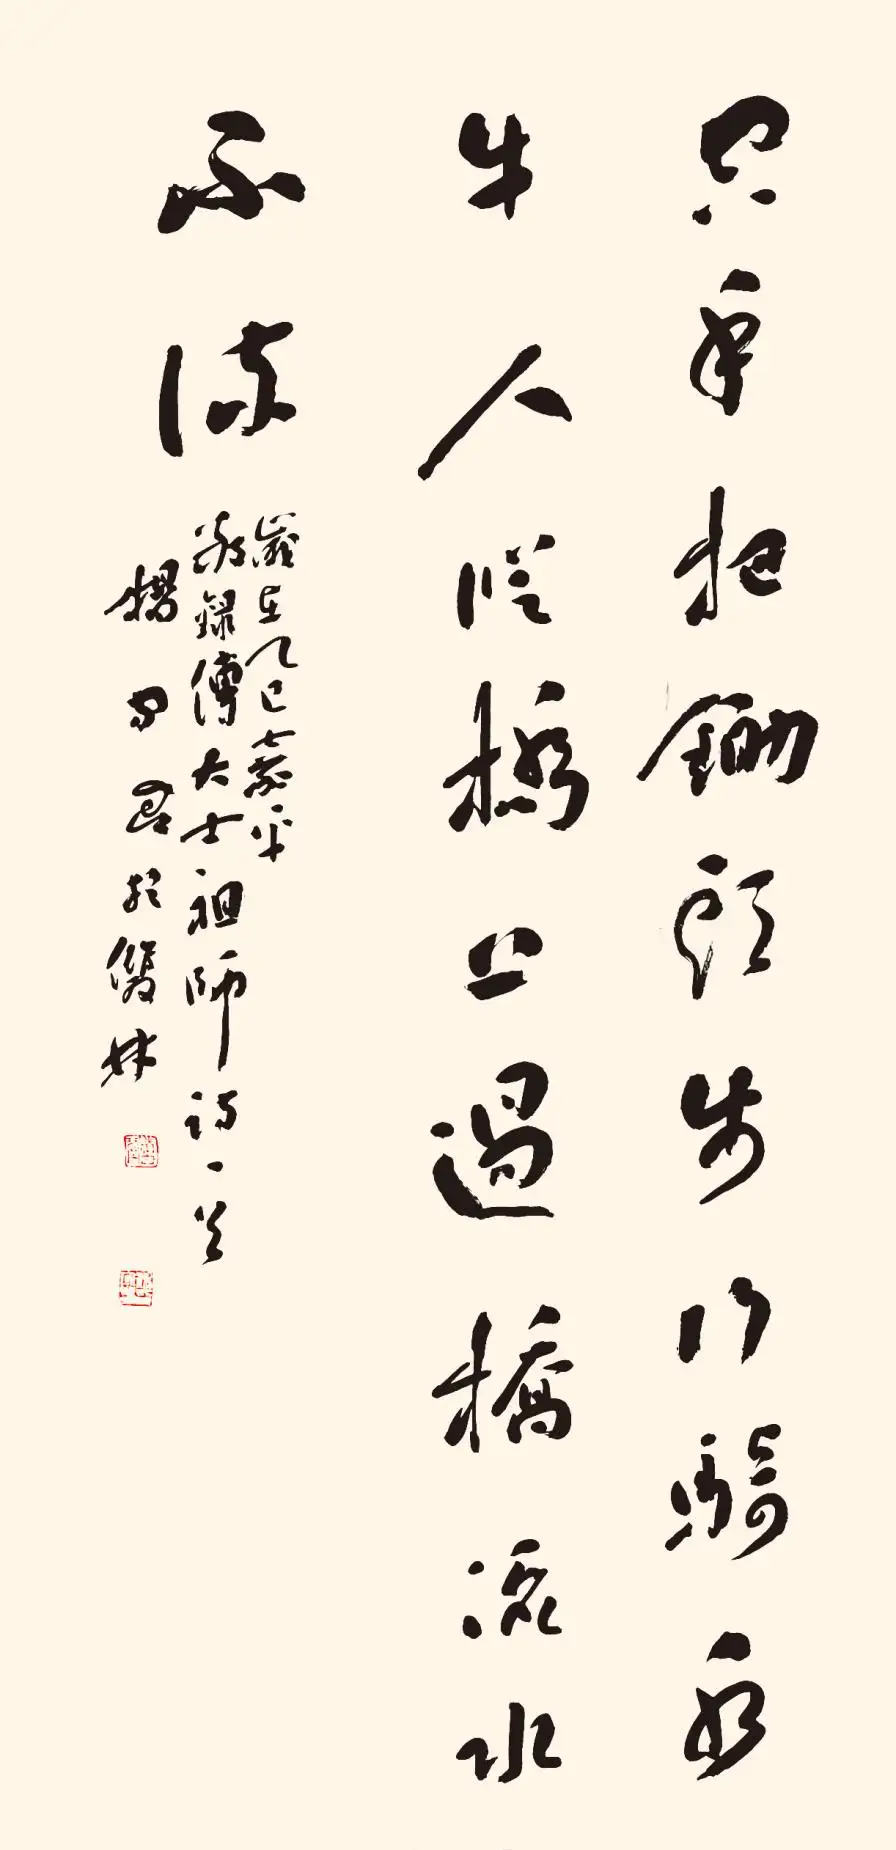 空手把鋤頭步行騎水
牛人從橋上過橋流水
不流
歲在乙巳嘉平
敬錄傅大士祖師詩一首
楊 於雙林